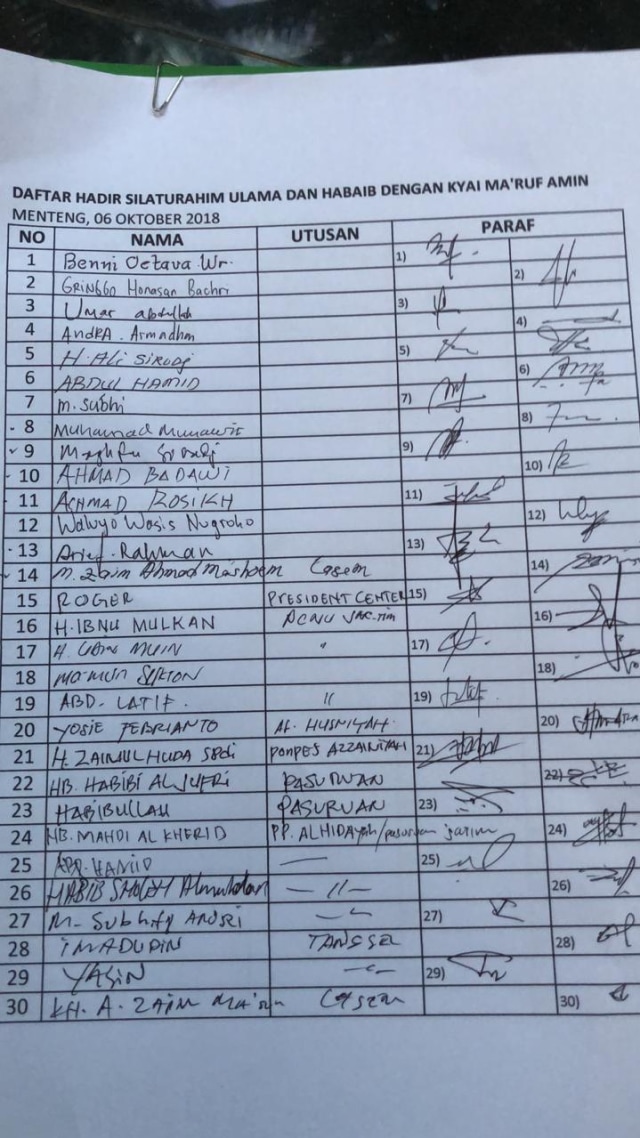 DAFTAR HADIR SILATURAHIM ULAMA DAN HABAIB DENGAN KYAI MA'RUF AMIN
MENTENG, 06 OKTOBER 2018
NO NAMA UTUSAN PARAF
1 Benni Octava Wr. 1)
2 GRINGGO Honasan Bachri 2)
3 Umar abdullah 3)
4 ANDRA. Armadhm 4)
5 H. Ali SIRODJ 5)
6 ABDUL HAMID 6)
7 M. Subhi 7)
8 Muhamad Munawir 8)
9 9)
10 AHMAD BADAWI 10)
11 ACHMAD ROSIKH 11)
12 Waluyo Wasis Nugroho 12)
13 Arief. Rahman 13)
14 M. Zaim Ahmad Mashoem Lasem 14)
15 ROGER PRESIDENT CENTER 15)
16 H. IBNU MULKAN PCNU JAK-Tim 16)
17 H. MUIN " 17)
18 18)
19 ABD. LATIF. " 19)
20 YOSIE FEBRIANTO AL HUSNIYAH. 20)
21 H. ZAINUL HUDA PONPES AZZAINIYAH 21)
22 HB. HABIBI AL JUFRI PASURUAN 22)
23 HABIBULLAH PASURUAN 23)
24 HB. MAHDI AL KHERID PP. ALHIDAYAH/pasuruan jatim 24)
25 ABD. HAMID — 25)
26 HABIB SHOLEH Almuhdar — " — 26)
27 M. Subhity 27)
28 IMADUDIN TANGSEL 28)
29 YASIN 29)
30 KH. A. ZAIM Lasem 30)